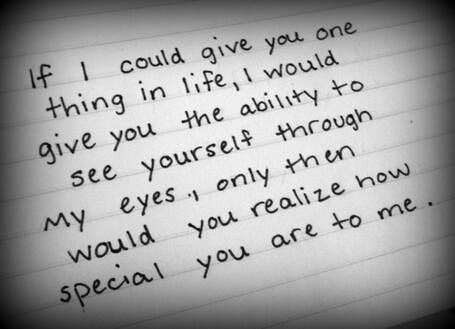 If I could give you one
thing in life, I would
give you the ability to
see yourself through
my eyes, only then
would you realize how
special you are to me.